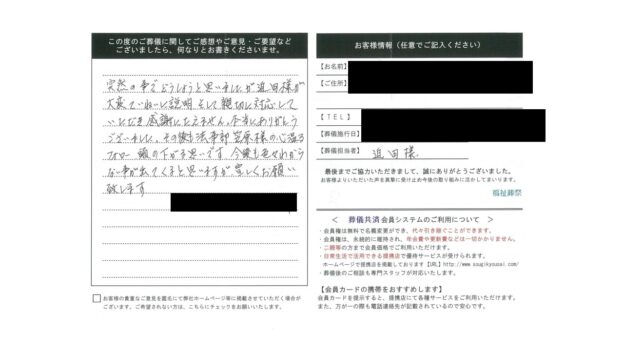 この度のご葬儀に関してご感想やご意見・ご要望など
ございましたら、何なりとお書きくださいませ。
突然の事でどうしようと思いましたが迫田様が
大変ていねいに説明そして親切に対応して
いただき感謝にたえません。本当にありがとう
ございました。その後も法事部笠原様の心温る
フォロー 頭の下がる思いです。今後も色々わから
ない事が出てくると思いますが宜しくお願い
致します
お客様の貴重なご意見を匿名にて弊社ホームページ等に掲載させていただく場合が
ございます。ご希望されない方は、こちらにチェックをお願いします。
お客様情報（任意でご記入ください）
【お名前】
【ご住所】
【TEL】
【葬儀施行日】
【葬儀担当者】 迫田様
最後までご協力いただきまして、誠にありがとうございました。
お客様よりいただいた声を真摯に受け止め今後の取り組みに活かしてまいります。
福祉葬祭
＜ 葬儀共済会員システムのご利用について ＞
・会員権は無料で名義変更ができ、代々引き継ぐことができます。
・会員権は、永続的に維持され、年会費や更新費などは一切かかりません。
・ご親等の方まで会員価格でご利用いただけます。
・日常生活で活用できる提携店で優待サービスが受けられます。
ホームページで提携店を掲載しております【URL】http://www.sougikyousai.com/
・葬儀後のご相談も専門スタッフが対応いたします。
【会員カードの携帯をおすすめします】
会員カードを提示すると、提携店にて各種サービスをご利用いただけます。
また、万が一の際も電話連絡先が記載されているので安心です。